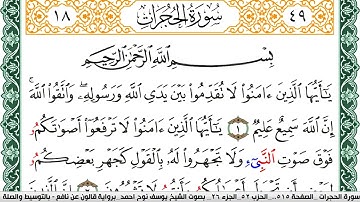 ٤٩ سُورَةُ الْحُجُرَاتِ ١٨
بِسْمِ اللَّهِ الرَّحْمَٰنِ الرَّحِيمِ
يَٰٓأَيُّهَا اَلذِينَ ءَامَنُوا لَا تُقَدِّمُوا بَيْنَ يَدَيِ اِللَّهِ وَرَسُولِهِۦ وَاتَّقُوا اللَّهَ
إِنَّ اَللَّهَ سَمِيعٌ عَلِيمٌ ١ يَٰٓأَيُّهَا اَلذِينَ ءَامَنُوا لَا تَرْفَعُوا أَصْوَٰتَكُمْ
فَوْقَ صَوْتِ اِلنَّبِيٓءِ وَلَا تَجْهَرُوا لَهُۥ بِالْقَوْلِ كَجَهْرِ بَعْضِكُمْ
سورة الحجرات .. الصفحة ٥١٥ .. الحزب ٥٢ .. الجزء ٢٦ .. بصوت الشيخ يوسف نوح احمد برواية قالون عن نافع - بالتوسيط والصلة